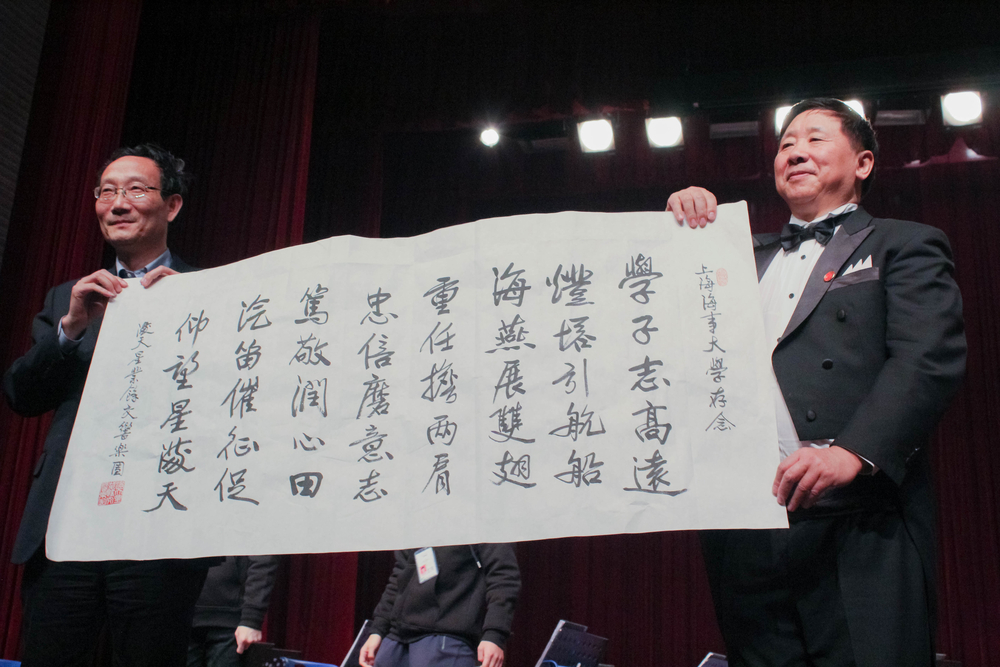 上海海事大學存念
學子志高遠
燈塔引航船
海燕展雙翅
重任擔兩肩
忠信磨意志
篤敬潤心田
汽笛催征促
仰望星天
業餘交響樂團